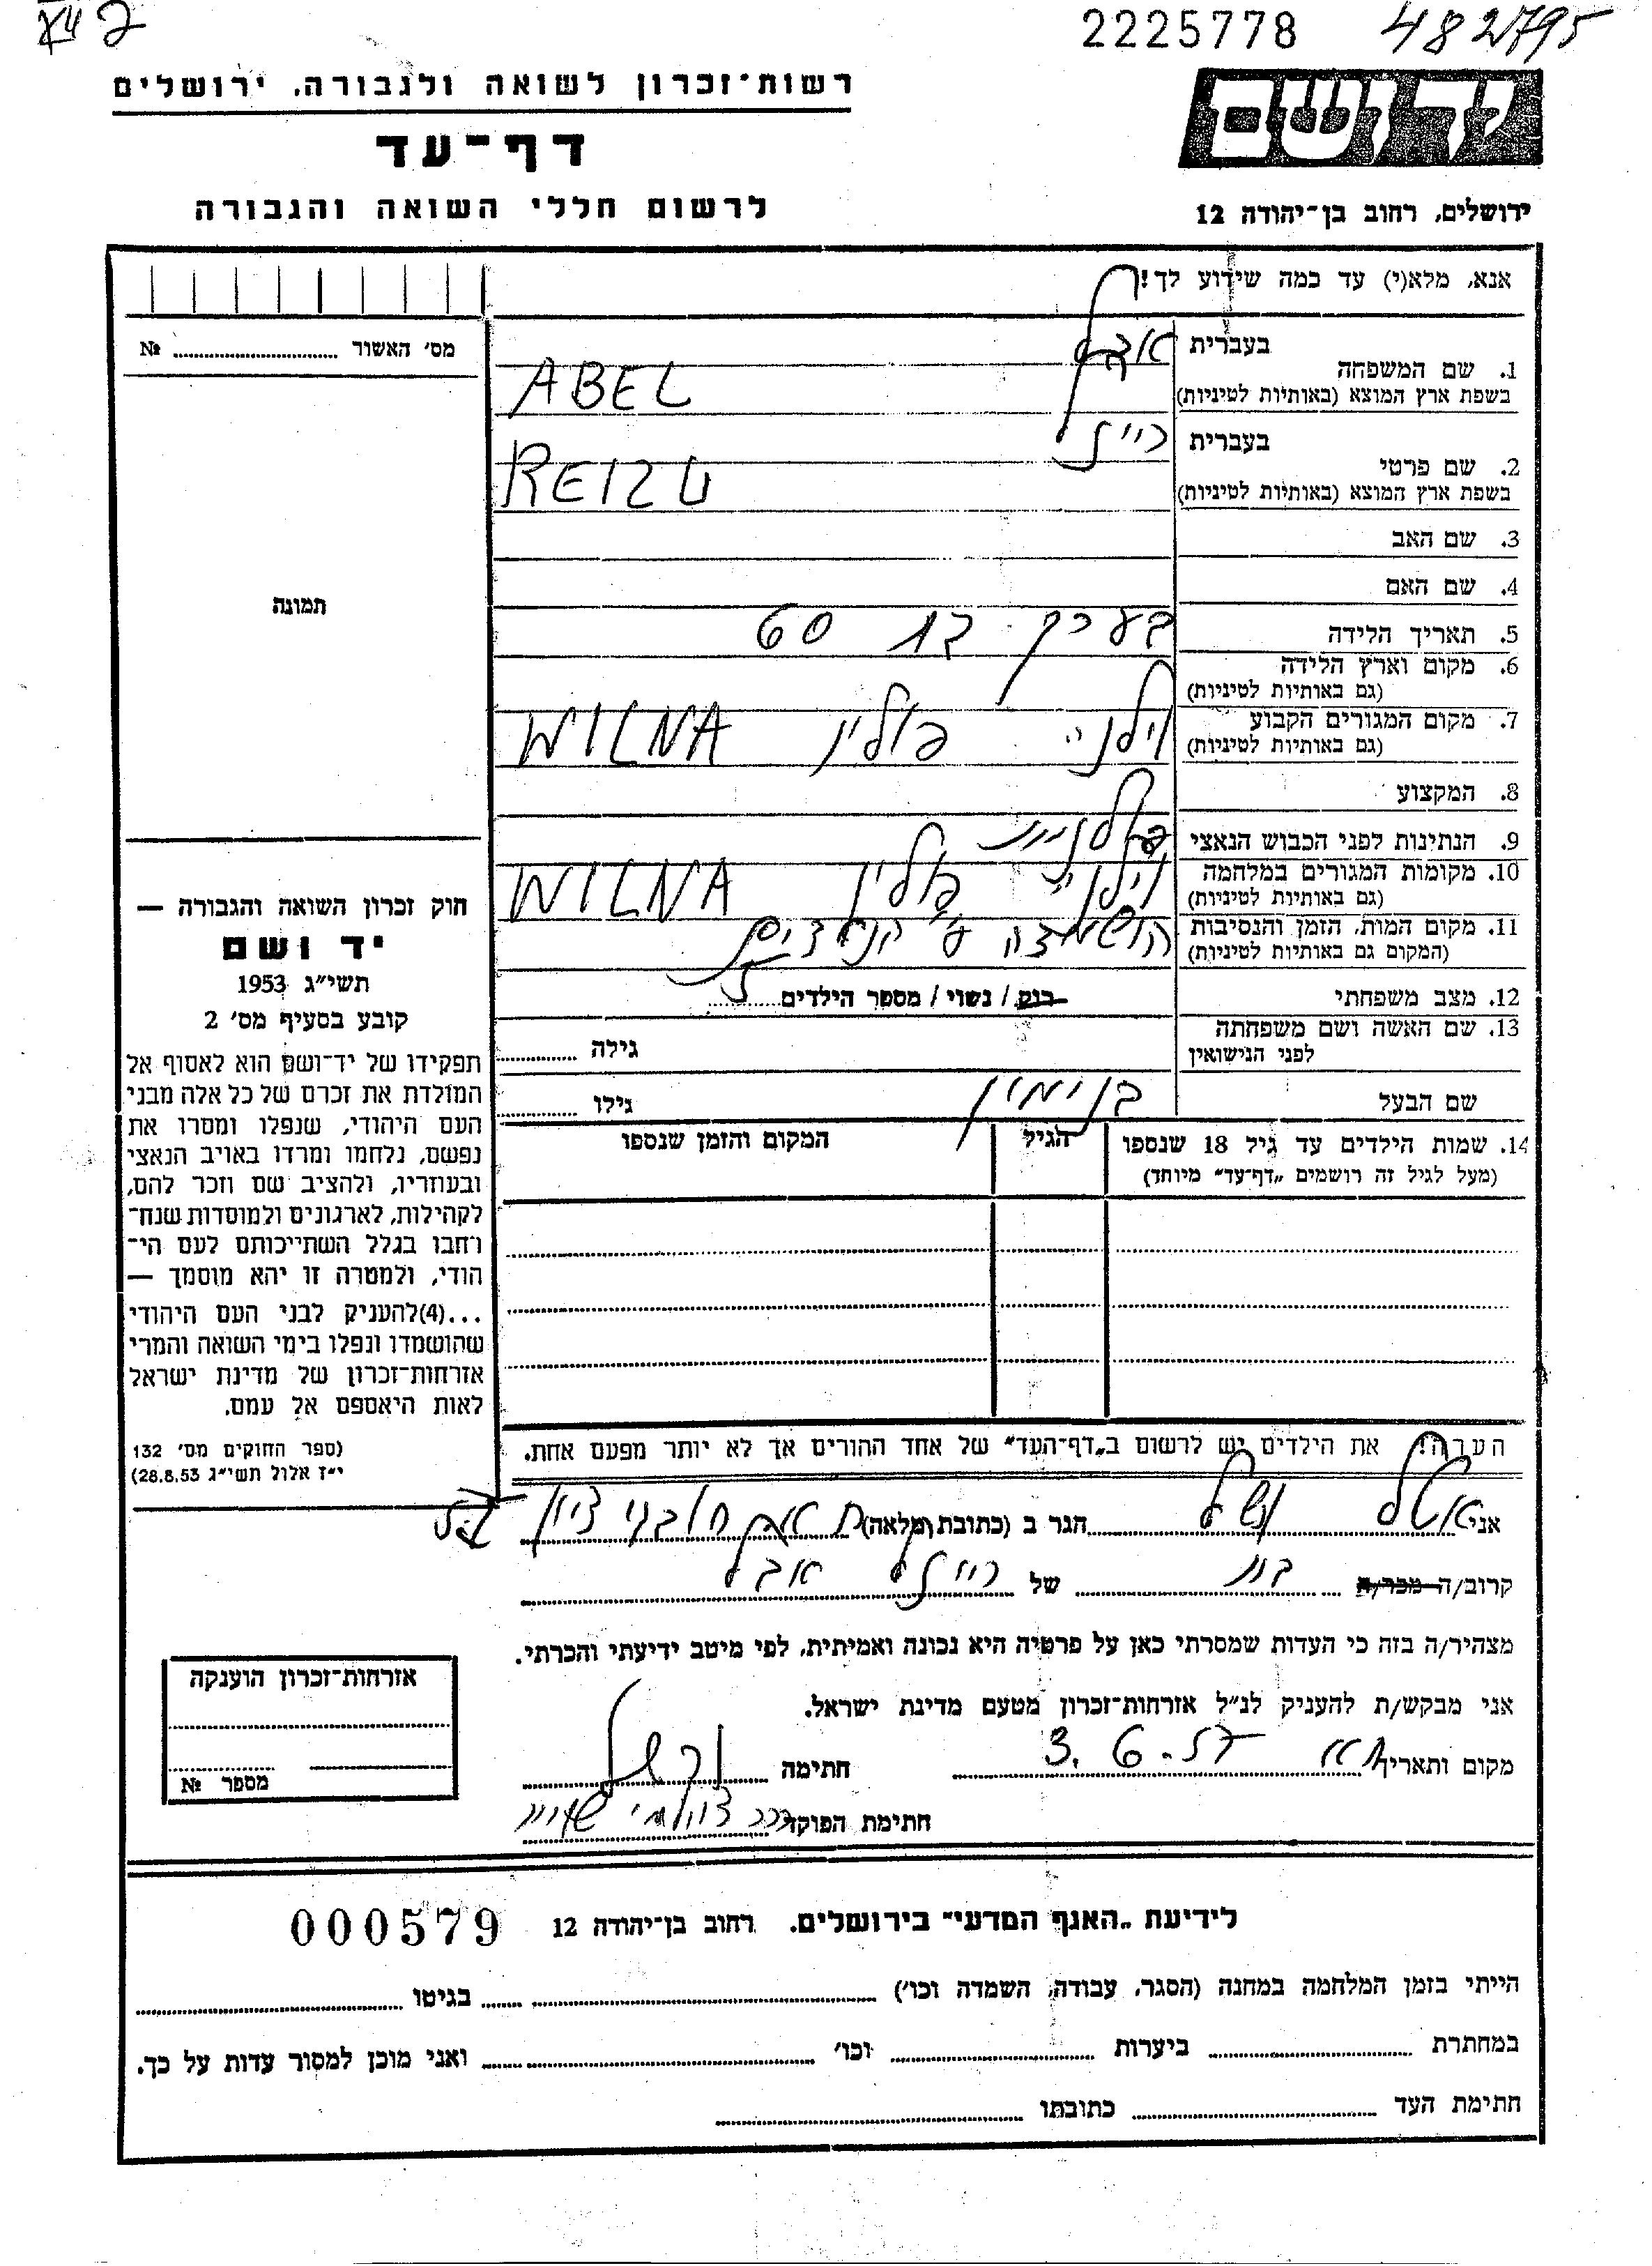 2225778
482795
רשות־זכרון לשואה ולגבורה, ירושלים
יד ושם
דף־עד
לרשום חללי השואה והגבורה
ירושלים, רחוב בן־יהודה 12
אנא, מלא(י) עד כמה שידוע לך!
מס׳ האשור № 
תמונה
1. שם המשפחה
בעברית אבל
בשפת ארץ המוצא (באותיות לטיניות) ABEL
2. שם פרטי
בעברית רייזל
בשפת ארץ המוצא (באותיות לטיניות)
3. שם האב
4. שם האם
5. תאריך הלידה בערך בת 60
6. מקום וארץ הלידה
(גם באותיות לטיניות)
7. מקום המגורים הקבוע וילנה פולין WILNA
(גם באותיות לטיניות)
8. המקצוע
9. הנתינות לפני הכבוש הנאצי פולנית
10. מקומות המגורים במלחמה וילנה פולין WILNA
(גם באותיות לטיניות)
11. מקום המות, הזמן והנסיבות הושמדה ע״י הנאצים
(המקום גם באותיות לטיניות)
12. מצב משפחתי רווק / נשוי / מספר הילדים
13. שם האשה ושם משפחתה
לפני הנישואין
גילה
שם הבעל בנימין גילו
14. שמות הילדים עד גיל 18 שנספו הגיל המקום והזמן שנספו
(מעל לגיל זה רושמים „דף־עד״ מיוחד)
חוק זכרון השואה והגבורה —
יד ושם
תשי״ג 1953
קובע בסעיף מס׳ 2
תפקידו של יד־ושם הוא לאסוף אל
המולדת את זכרם של כל אלה מבני
העם היהודי, שנפלו ומסרו את
נפשם, נלחמו ומרדו באויב הנאצי
ובעוזריו, ולהציב שם וזכר להם,
לקהילות, לארגונים ולמוסדות שנח־
רחבו בגלל השתייכותם לעם הי־
הודי, ולמטרה זו יהא מוסמך —
...(4)להעניק לבני העם היהודי
שהושמדו ונפלו בימי השואה והמרי
אזרחות־זכרון של מדינת ישראל
לאות היאספם אל עמם.
(ספר החוקים מס׳ 132
י״ז אלול תשי״ג 28.8.53)
הערה! את הילדים יש לרשום ב„דף־העד״ של אחד ההורים אך לא יותר מפעם אחת.
אני הגר ב (כתובת מלאה) בני ציון
קרוב/ה מכר/ה בת של רייזל אבל
מצהיר/ה בזה כי העדות שמסרתי כאן על פרטיה היא נכונה ואמיתית, לפי מיטב ידיעתי והכרתי.
אני מבקש/ת להעניק לנ״ל אזרחות־זכרון מטעם מדינת ישראל.
מקום ותאריך ת״א 3.6.57 חתימה
חתימת הפוקד
אזרחות־זכרון הוענקה
מספר №
לידיעת „האגף המדעי״ בירושלים. רחוב בן־יהודה 12 000579
הייתי בזמן המלחמה במחנה (הסגר, עבודה, השמדה וכו׳) בגיטו
במחתרת ביערות וכו׳ ואני מוכן למסור עדות על כך.
חתימת העד כתובתו